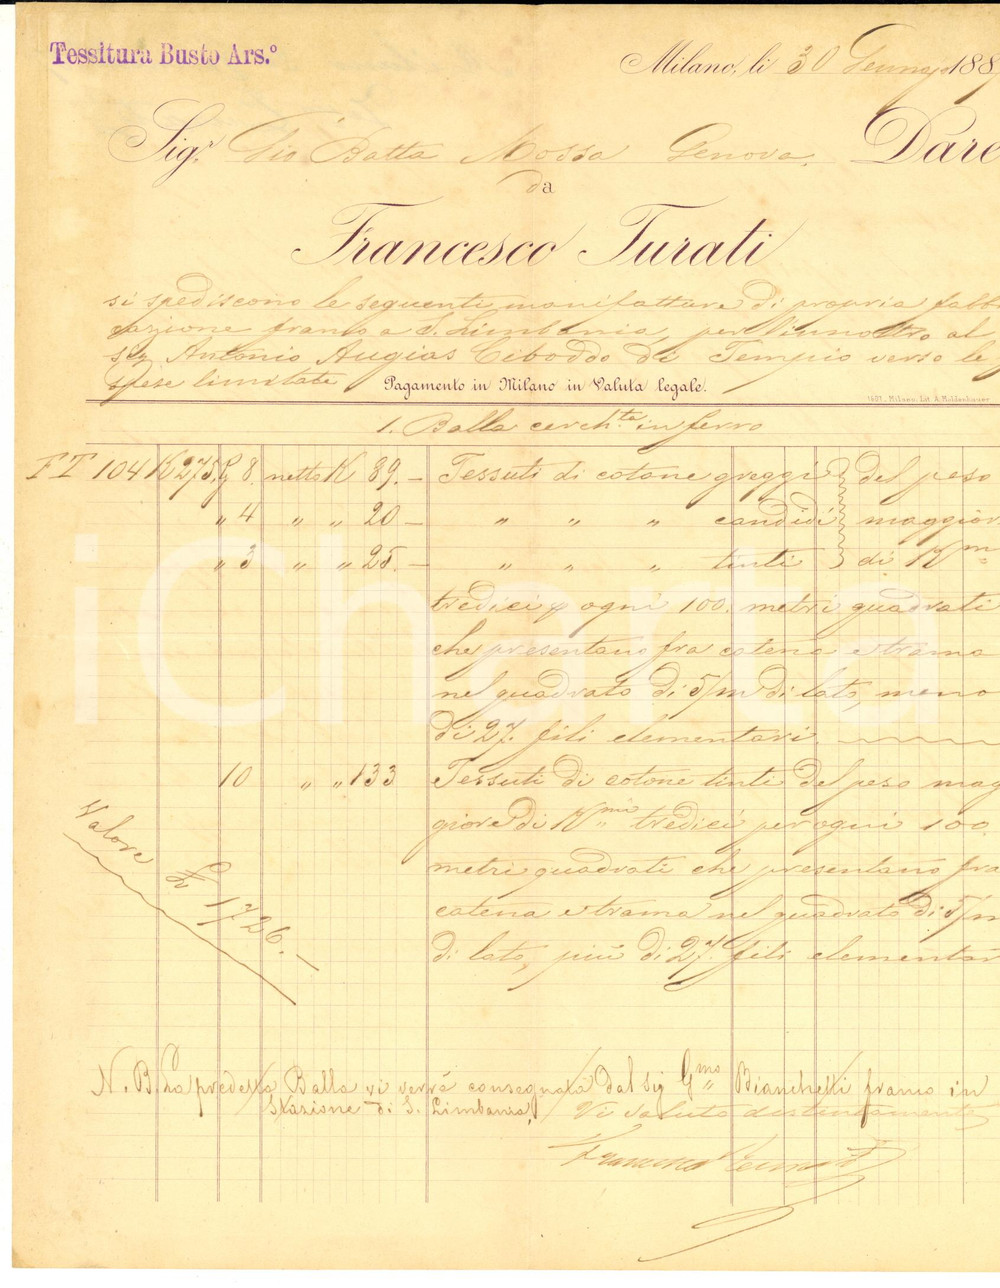 Tessitura Busto Ars.º
Milano, li 30 Gennajo 188
Sig.r Gio Batta Mossa Genova. Dare
da
Francesco Turati
si spediscono le seguenti manifatture di propria fabb
cazione franco a S. Limbania, per l'innoltro al
sig Antonio Augias Ciboddo di Tempio verso le
spese limitate Pagamento in Milano in Valuta legale.
1607 - Milano. Lit. A. Moldenhauer
1. Balla cerch.ta in ferro
FT 104 K 275. P 8. netto K 89. — Tessuti di cotone greggi del peso
" 4 " " 20 — " " " candidi maggior
" 3 " " 25. — " " " tinti di K.mi
tredici p ogni 100. metri quadrati
che presentano fra catena e trama
nel quadrato di 5/m di lato, meno
di 27. fili elementari.
10 " " 133 Tessuti di cotone tinti del peso mag
giore di K.mi tredici per ogni 100.
metri quadrati che presentano fra
catena e trama nel quadrato di 5/m
di lato, più di 27. fili elementar
Valore £ 1726. —
N. B. La predetta Balla vi verrà consegnata dal Sig G.mo Bianchetti franco in
Stazione di S. Limbania,
Vi saluto distintamente
Francesco
iCharta